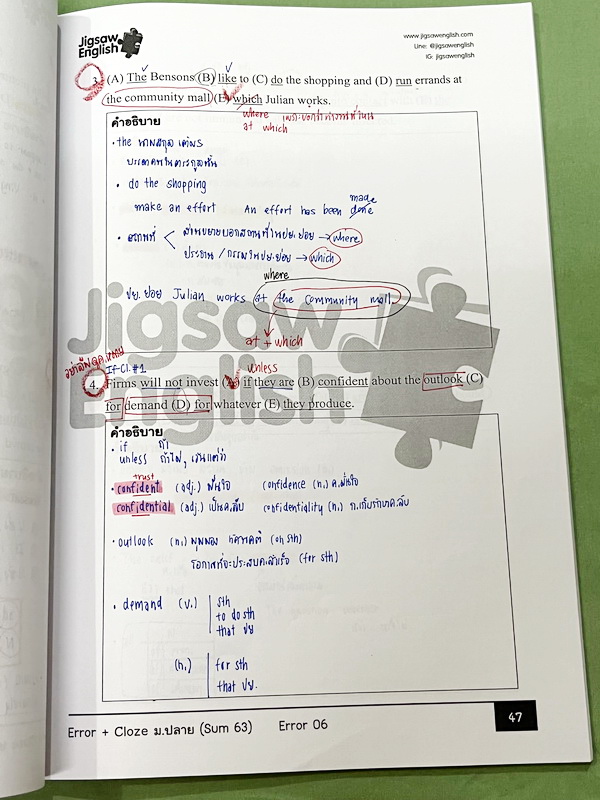 Jigsaw English
www.jigsawenglish.com
Line: @jigsawenglish
IG: jigsawenglish
3. (A) The Bensons (B) like to (C) do the shopping and (D) run errands at
the community mall (E) which Julian works.
where
at which
คำอธิบาย
• the นามสกุล เติม s
• do the shopping
make an effort An effort has been done made
where
which
where
Julian works at the community mall.
at + which
Jigsaw English
If Cl. #1
unless
4. Firms will not invest (A) if they are (B) confident about the outlook (C)
for demand (D) for whatever (E) they produce.
คำอธิบาย
• if ถ้า
unless ถ้าไม่, เว้นแต่ว่า
trust
• confident (adj.) มั่นใจ confidence (n.) ค.มั่นใจ
confidential (adj.) เป็นค.ลับ confidentiality (n.) ก.เก็บรักษาค.ลับ
• outlook (n.) มุมมอง ทัศนคติ (on sth)
โอกาสที่จะประสบค.สำเร็จ (for sth)
• demand (v.) sth
to do sth
that ปย
(n.) for sth
that ปย.
Error + Cloze ม.ปลาย (Sum 63) Error 06
47